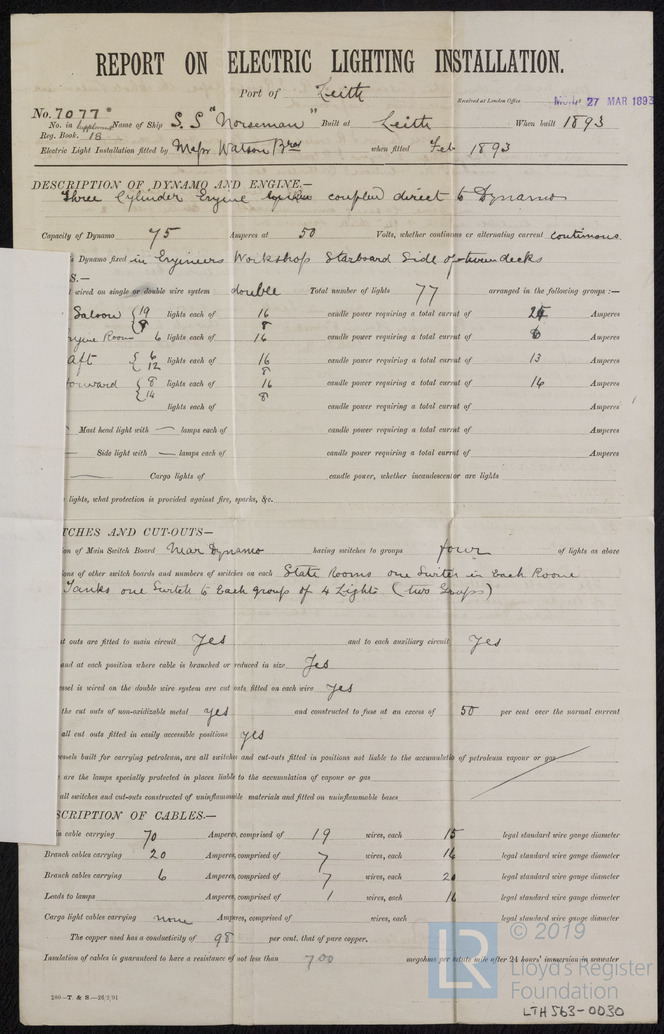 REPORT ON ELECTRIC LIGHTING INSTALLATION.
Port of Leith
Received at London Office 27 MAR 1893
No. 7077
No. in Supplement Name of Ship S.S "Norseman" Built at Leith When built 1893
Reg. Book. 18
Electric Light Installation fitted by Messrs Watson Bros when fitted Feb 1893
DESCRIPTION OF DYNAMO AND ENGINE.—
Three Cylinder Engine coupled direct to Dynamo
Capacity of Dynamo 75 Amperes at 50 Volts, whether continous or alternating current continous
Dynamo fixed in Engineers Workshop Starboard Side of tween decks
S.—
wired on single or double wire system double Total number of lights 77 arranged in the following groups :—
Saloon { 19 lights each of 16 candle power requiring a total current of Amperes
8 8
Engine Room 6 lights each of 16 candle power requiring a total current of 6 Amperes
aft { 6 lights each of 16 candle power requiring a total current of 13 Amperes
12 8
forward { 8 lights each of 16 candle power requiring a total current of 14 Amperes
14 8
lights each of candle power requiring a total current of Amperes
Mast head light with — lamps each of candle power requiring a total current of Amperes
Side light with — lamps each of candle power requiring a total current of Amperes
Cargo lights of candle power, whether incandescent or arc lights
lights, what protection is provided against fire, sparks, &c.
TCHES AND CUT-OUTS—
on of Main Switch Board Near Dynamo having switches to groups four of lights as above
ions of other switch boards and numbers of switches on each State Rooms one Switch in Each Room
Tanks one Switch to Each group of 4 Lights (two Groups)
t outs are fitted to main circuit Yes and to each auxiliary circuit Yes
and at each position where cable is branched or reduced in size Yes
essel is wired on the double wire system are cut outs fitted on each wire Yes
the cut outs of non-oxidizable metal yes and constructed to fuse at an excess of 50 per cent over the normal current
all cut outs fitted in easily accessible positions yes
vessels built for carrying petroleum, are all switches and cut-outs fitted in positions not liable to the accumulation of petroleum vapour or gas
are the lamps specially protected in places liable to the accumulation of vapour or gas
all switches and cut-outs constructed of uninflammable materials and fitted on uninflammable bases
SCRIPTION OF CABLES.—
in cable carrying 70 Amperes, comprised of 19 wires, each 15 legal standard wire gauge diameter
Branch cables carrying 20 Amperes, comprised of 7 wires, each 16 legal standard wire gauge diameter
Branch cables carrying 6 Amperes, comprised of 7 wires, each 20 legal standard wire gauge diameter
Leads to lamps Amperes, comprised of 1 wires, each 16 legal standard wire gauge diameter
Cargo light cables carrying none Amperes, comprised of wires, each legal standard wire gauge diameter
The copper used has a conductivity of 98 per cent. that of pure copper.
Insulation of cables is guaranteed to have a resistance of not less than 700 megohms per statute mile after 24 hours' immersion in seawater
200—T. & S.—26/2/91
© 2019
LR
Lloyd's Register
Foundation
LTH563-0030